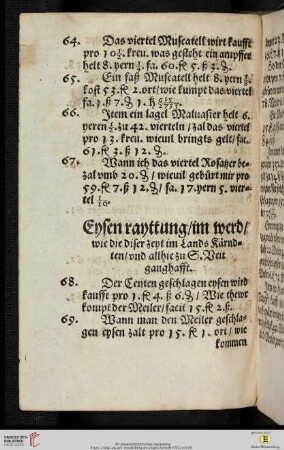 64. Das viertel Muscatell wirt kaufft
pro 10½. kreu. was gesteht ein anpffen
helt 8. yern ¾. fa. 60. fl 5. ß 3. ₰.
65. Ein faß Muscatell helt 8. yern ¾.
kost 53. fl 2. ort/ wie kumpt das viertel
fa. 1. ß 7. ₰ 1. h
66. Item ein lagel Maluasier helt 6.
yeren ¾. zu 42. vierteln / zal das viertel
pro 13. kreu. wieuil bringts gelt / fac.
61. fl 3. ß 12. ₰.
67. Wann ich das viertel Rosatzer be-
zal vmb 20. ₰ / wieuil gebürt mir pro
59. fl 7. ß 12 ₰ / fa. 17. yern 5. vier-
tel
Eysen rayttung / im werd /
wie die diser zeyt im Lands Kärnd-
ten / vnd allhie zu S. Veit
ganghafft.
68. Der Centen geschlagen eysen wird
kaufft pro 1. fl 4. ß 6. ₰ / Wie thewr
kompt der Meiler / facit 15. fl 2. ß.
69. Wann man den Meiler geschla-
gen eysen zalt pro 15. fl 1. ort / wie
kommen